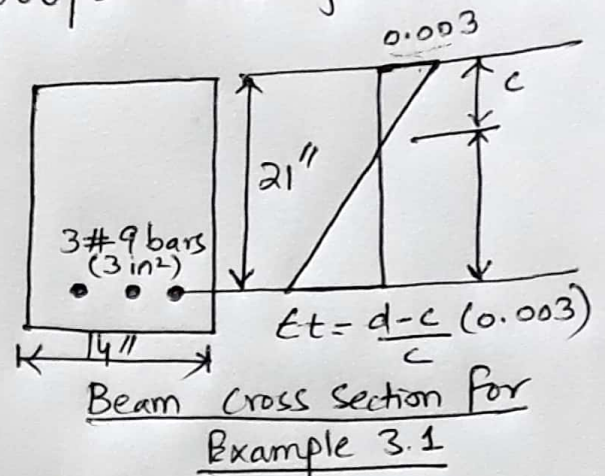 0.003
c
21"
3#9 bars
(3 in²)
14"
Et = d-c/c (0.003)
Beam Cross Section for
Example 3.1